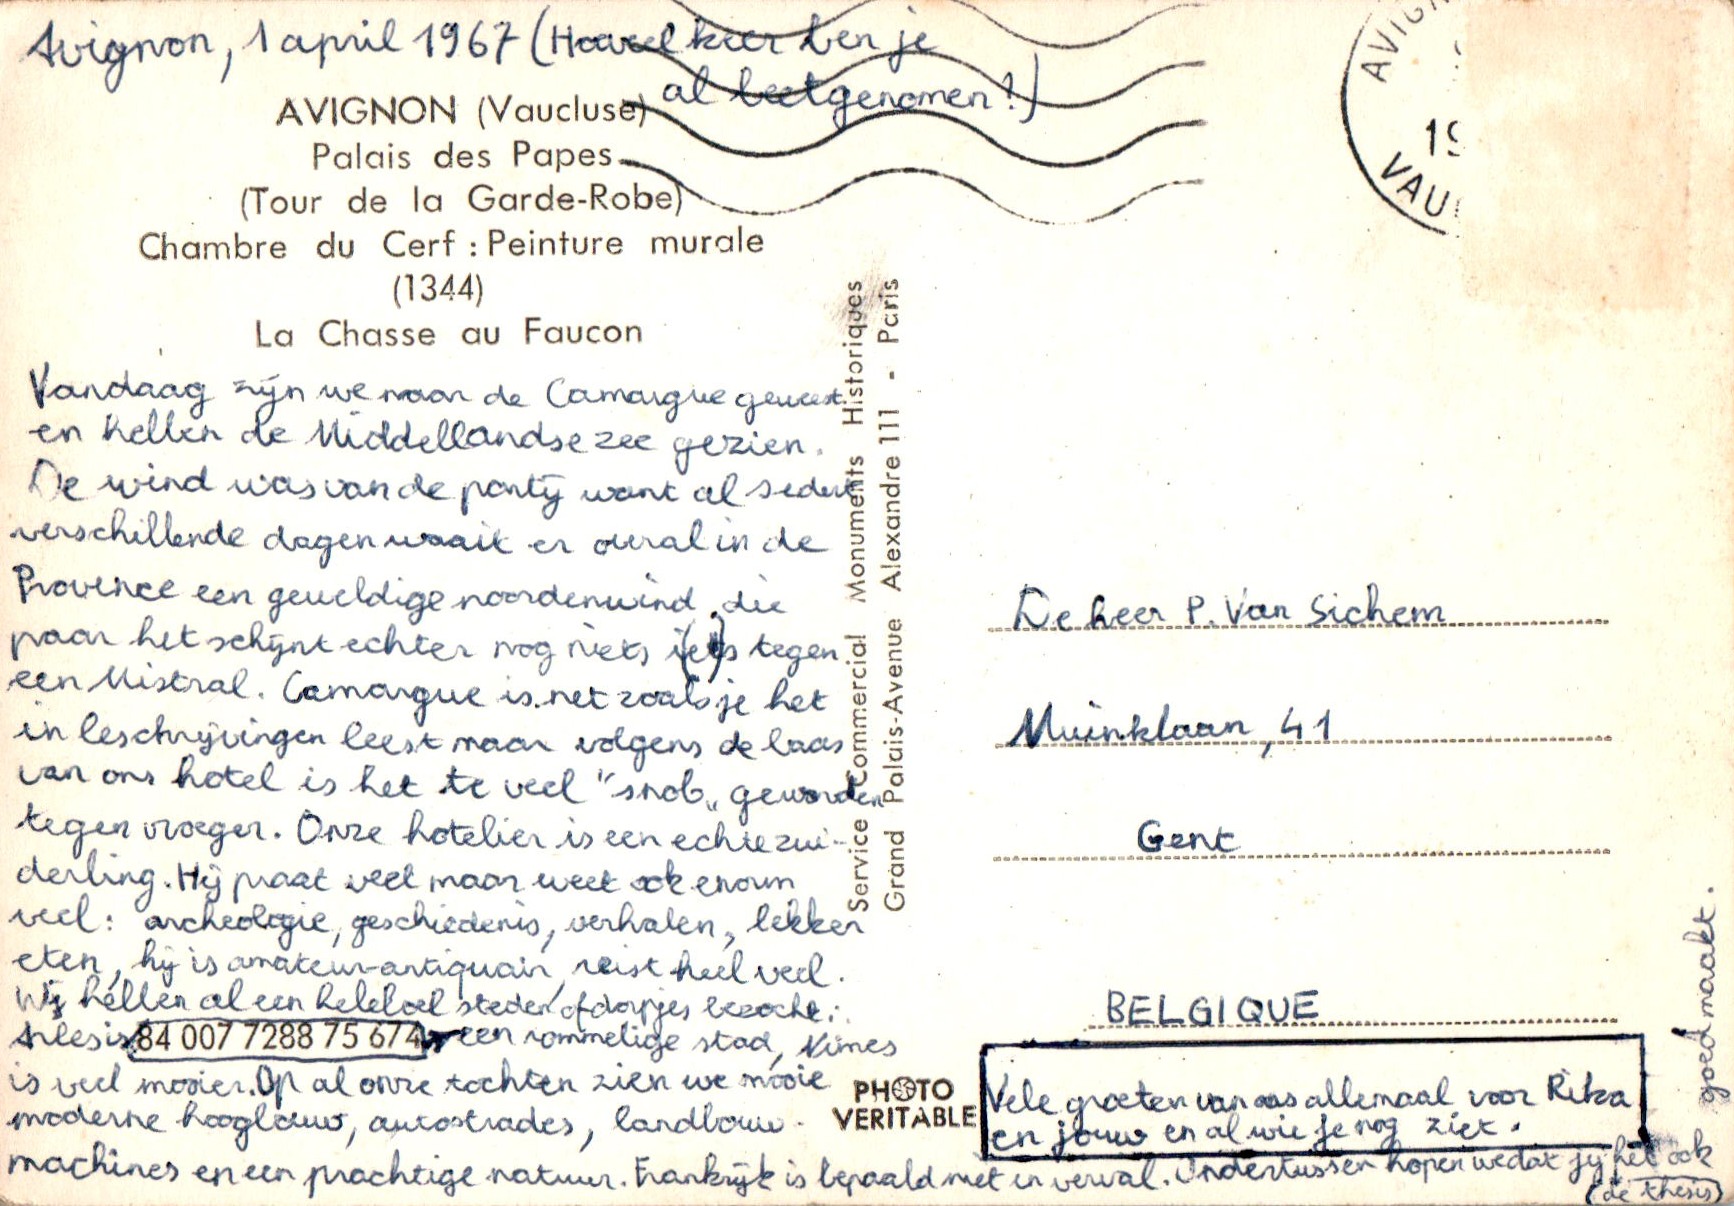 Avignon, 1 april 1967 (Hoeveel keer ben je
al beetgenomen?)
AVIGNON (Vaucluse)
Palais des Papes
(Tour de la Garde-Robe)
Chambre du Cerf : Peinture murale
(1344)
La Chasse au Faucon
Vandaag zijn we naar de Camargue geweest
en hebben de Middellandse zee gezien.
De wind was van de partij want al sedert
verschillende dagen waait er overal in de
Provence een geweldige noordenwind, die
naar het schijnt echter nog niets is tegen
een Mistral. Camargue is net zoals je het
in beschrijvingen leest maar volgens de baas
van ons hotel is het te veel "snob" geworden
tegen vroeger. Onze hotelier is een echte zui-
derling. Hij praat veel maar weet ook enorm
veel: archeologie, geschiedenis, verhalen, lekker
eten, hij is amateur-antiquair, reist heel veel.
Wij hebben al een heleboel steden of dorpjes bezocht:
Arles is 84 007 7288 75 674 een rommelige stad, Nimes
is veel mooier. Op al onze tochten zien we mooie
moderne hoogbouw, autostrades, landbouw-
machines en een prachtige natuur. Frankrijk is bepaald niet in verval. Ondertussen hopen we dat jij het ook
(de thesis)
goed maakt.
Service Commercial Monuments Historiques
Grand Palais-Avenue Alexandre 111 - Paris
PHOTO
VERITABLE
AVIGN
19
VAU
De heer P. Van Sichem
Muinklaan, 41
Gent
BELGIQUE
Vele groeten van ons allemaal voor Rika
en jouw en al wie je nog ziet.